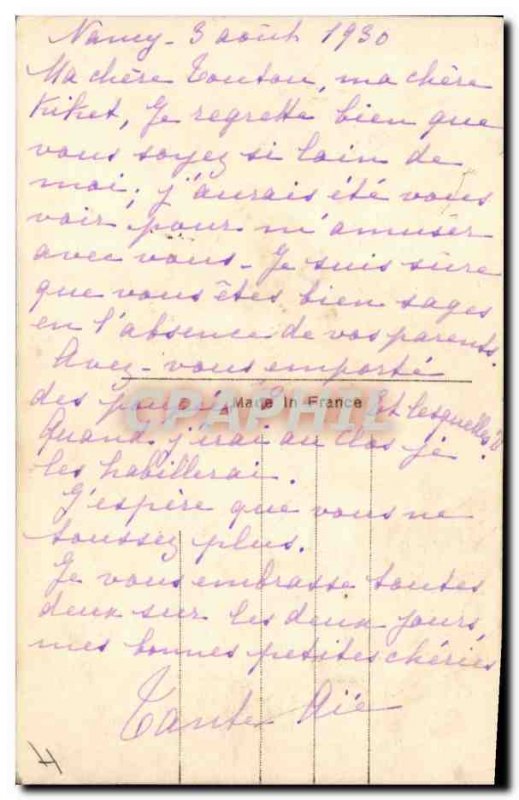 Nancy - 3 août 1930
Ma chère Touton, ma chère
Kiket, Je regrette bien que
vous soyez si loin de
moi; j'aurais été vous
voir, pour m'amuser
avec vous - Je suis sûre
que vous êtes bien sages
en l'absence de vos parents.
Avez-vous emporté
des poupées? Et lesquelles?
CPAPHIL
Made In France
Quand j'irai au Clos je
les habillerai.
J'espère que vous ne
toussez plus.
Je vous embrasse toutes
deux sur les deux joues,
mes bonnes petites chéries
Tante
H